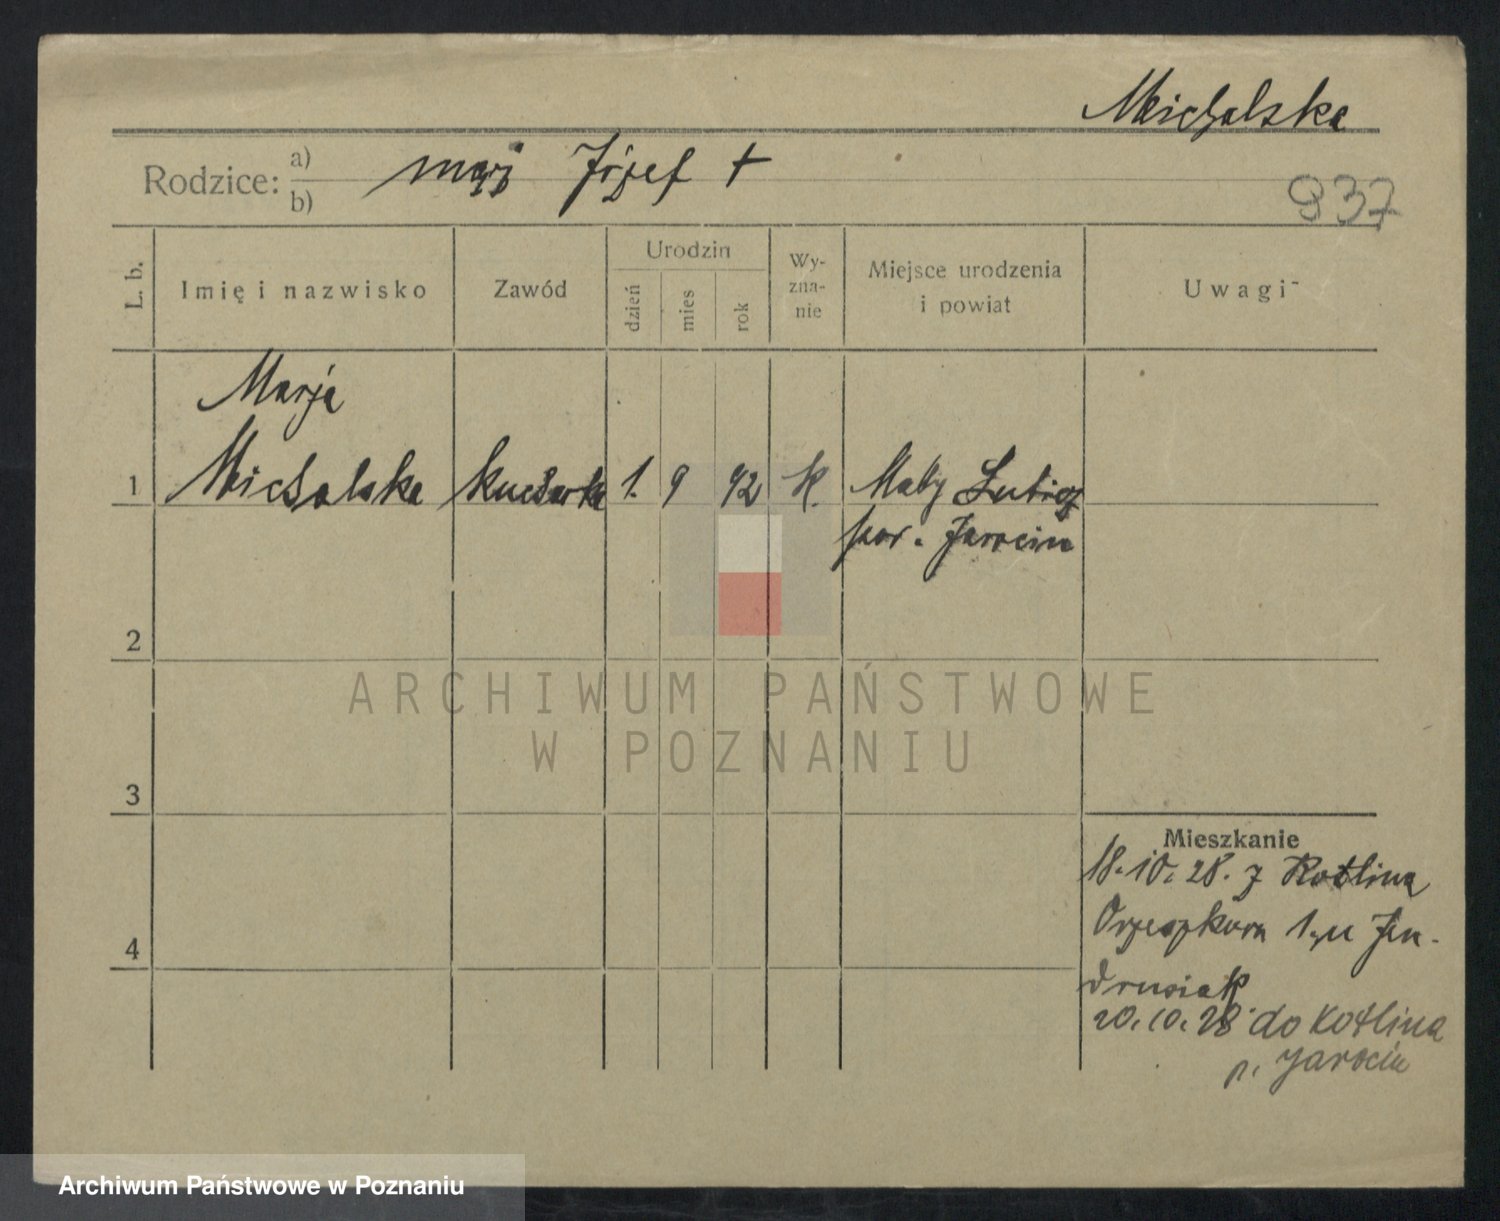 Michalska
Rodzice: a) b) mąż Józef +
937
L. b.
Imię i nazwisko
Zawód
Urodzin
dzień
mies
rok
Wy-
zna-
nie
Miejsce urodzenia
i powiat
Uwagi
Marja
1 Michalska kucharka 1. 9 92 k. Mały Lubież
pow. Jarocin
2
3
4
Mieszkanie
18.10.28. z Kotlina
1, u Jen-
drusiak
20.10.28 do Kotlina
p. Jarocin
ARCHIWUM PAŃSTWOWE
W POZNANIU
Archiwum Państwowe w Poznaniu